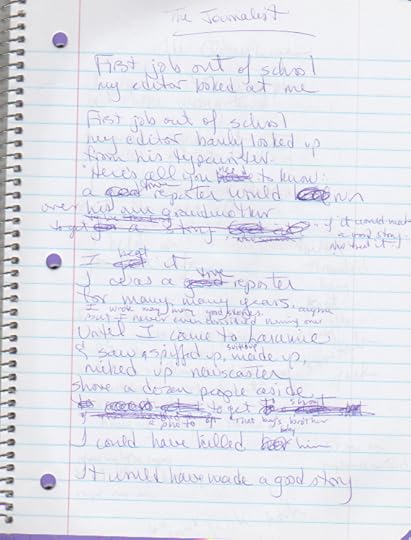 The Journalist
First job out of school
my editor looked at me
First job out of school
my editor barely looked up
from his typewriter.
"Here's all you need to know:
a good true reporter would run
over his own grandmother
to get a story
if it would make
a good story
I beat it
I was a good true reporter
for many, many years.
I wrote many, many good stories.
but I never even considered
Until I came to
& saw a spiffed up, made up,
miked up newscaster
shove a dozen people aside
to get
a photo of that boy's brother
I could have killed him
It would have made a good story